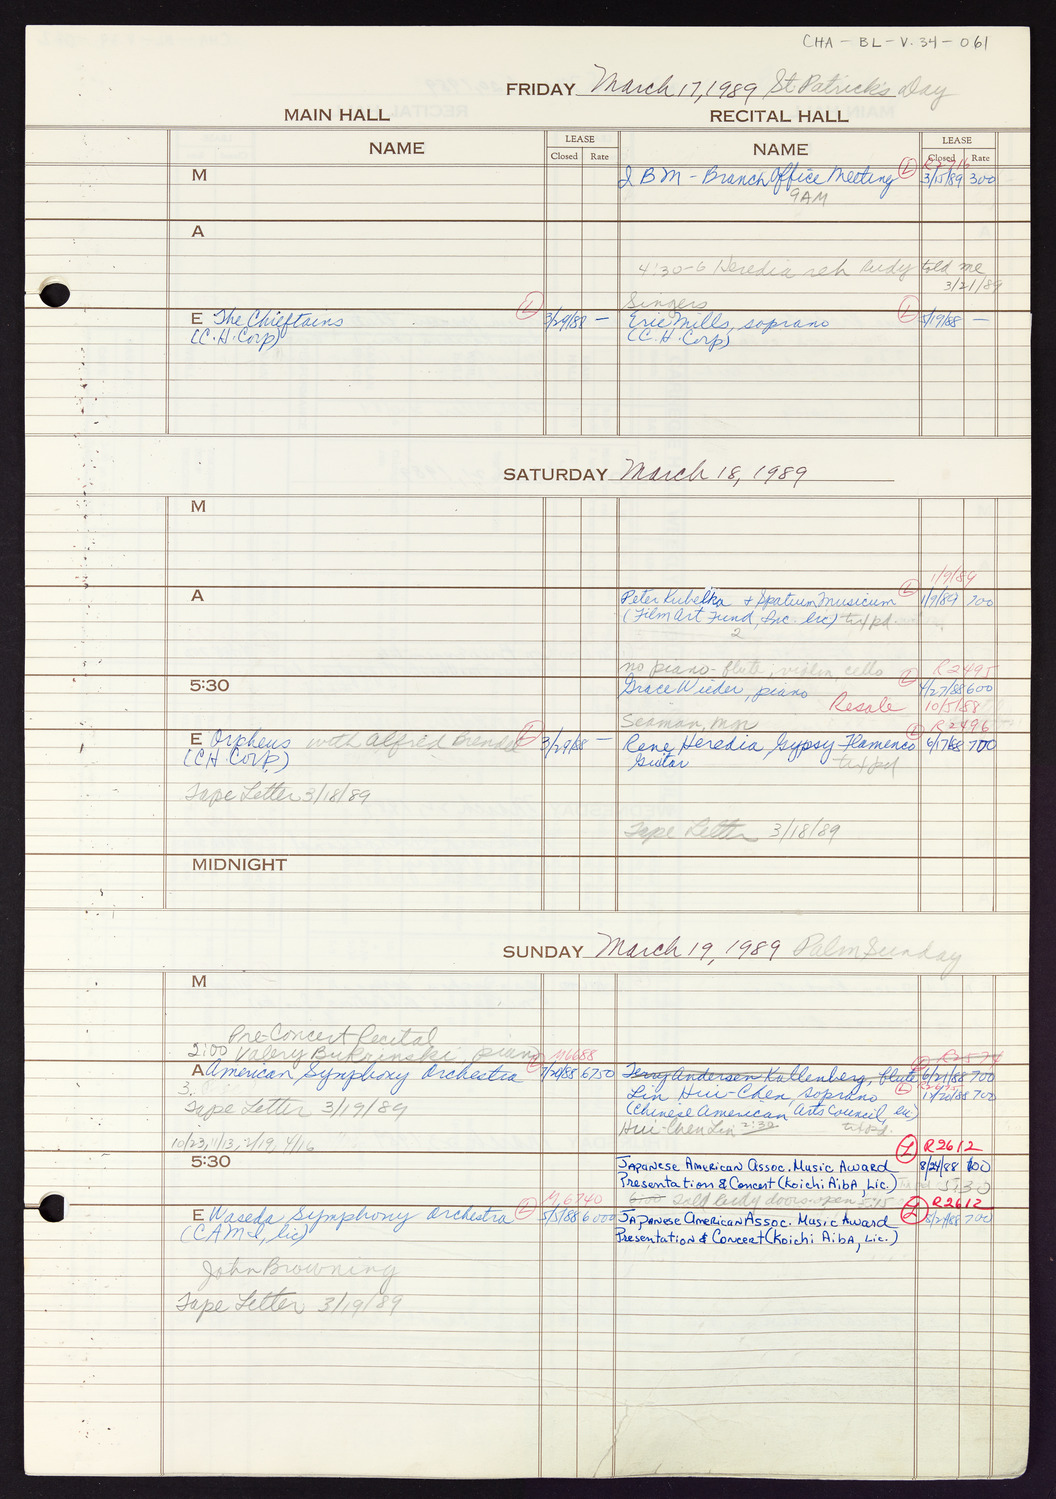 CHA-BL-V.34-061
FRIDAY March 17, 1989 St. Patrick's Day
MAIN HALL RECITAL HALL
NAME LEASE NAME LEASE
Closed Rate Closed Rate
M IBM - Branch Office Meeting L 3/15/89 300
9AM
A
4:30-6 Heredia reh Judy told me
3/21/89
Singers
E The Chieftains L 3/29/88 — Eric Mills, soprano L 5/19/88 —
(C.H. Corp) (C.H. Corp)
SATURDAY March 18, 1989
M
1/9/89
A Peter Kubelka + Spatium Musicum L 1/9/89 700
(Film Art Fund, Inc. lic) txt pd
2
no piano - flute, violin, cello L R2495
5:30 Grace Wieder, piano 4/27/88 600
Resale 10/5/88
Seaman, mn L R2496
E Orpheus with Alfred Brendel L 3/29/88 — Rene Heredia, Gypsy Flamenco 6/7/88 700
(CH. Corp) Guitar txt pd
Tape Letter 3/18/89
Tape Letter 3/18/89
MIDNIGHT
SUNDAY March 19, 1989 Palm Sunday
M
Pre-Concert Recital
2:00 Valery Bukrinski, piano L M6688 R2574
A American Symphony Orchestra 6750 Terry Andersen Kallenberg, flute 6/21/88 700
3. Lin Hui-Chen, soprano L 700
Tape Letter 3/19/89 (Chinese American Arts Council, lic)
Hui-Chen Lin 2:30 txt pd.
10/23, 11/13, 2/19, 4/16 L R2612
5:30 Japanese American Assoc. Music Award 8/24/88 100
Presentation & Concert (Koichi Aiba, Lic.) 5:30
M,6740 6:00 Judy doors open 5:15 R2612
E Waseda Symphony Orchestra L 5/5/88 6000 Japanese American Assoc. Music Award L 700
(CAMI, lic) Presentation & Concert (Koichi Aiba, Lic.)
John Browning
Tape Letter 3/19/89